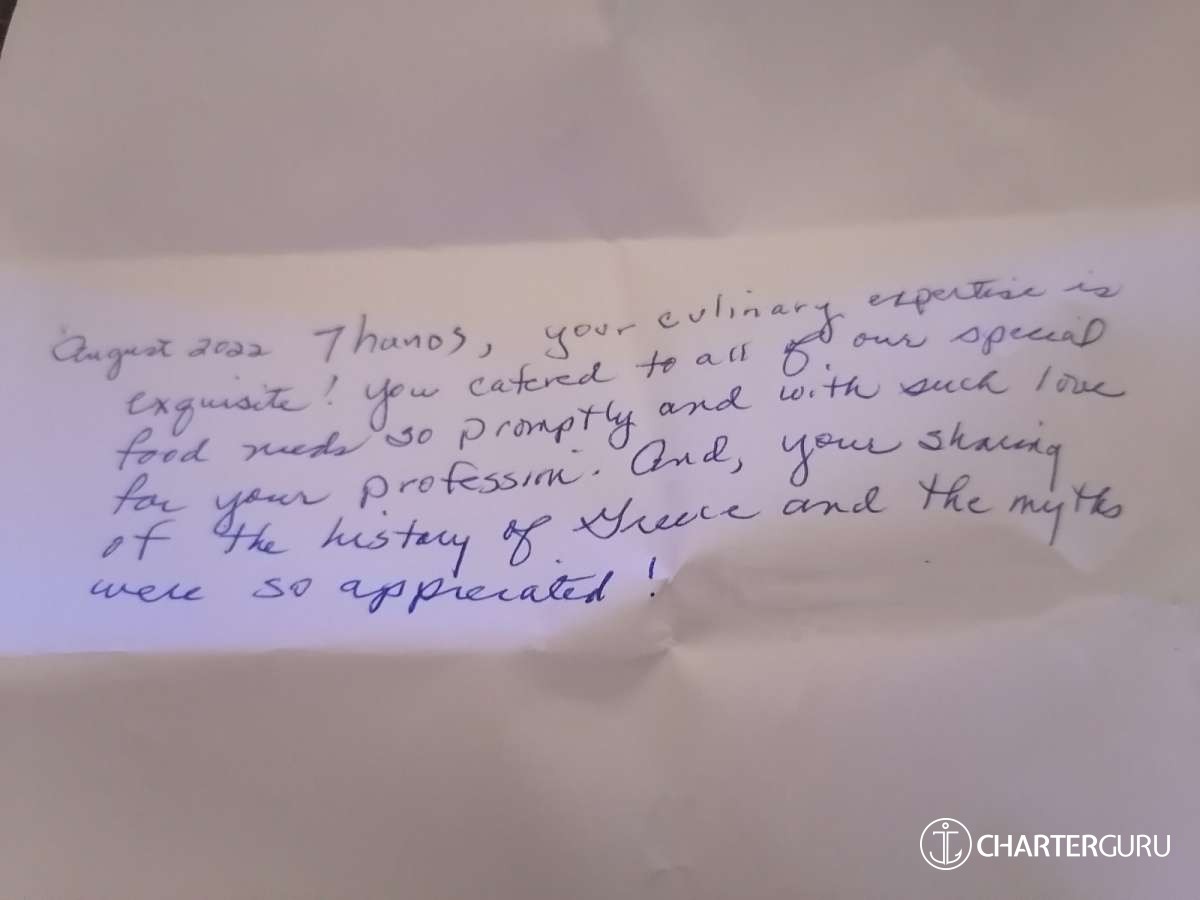 August 2022 Thanos, your culinary expertise is
exquisite! you catered to all of our special
food needs so promptly and with such love
for your profession. And, your sharing
of the history of Greece and the myths
were so appreciated!
CHARTERGURU